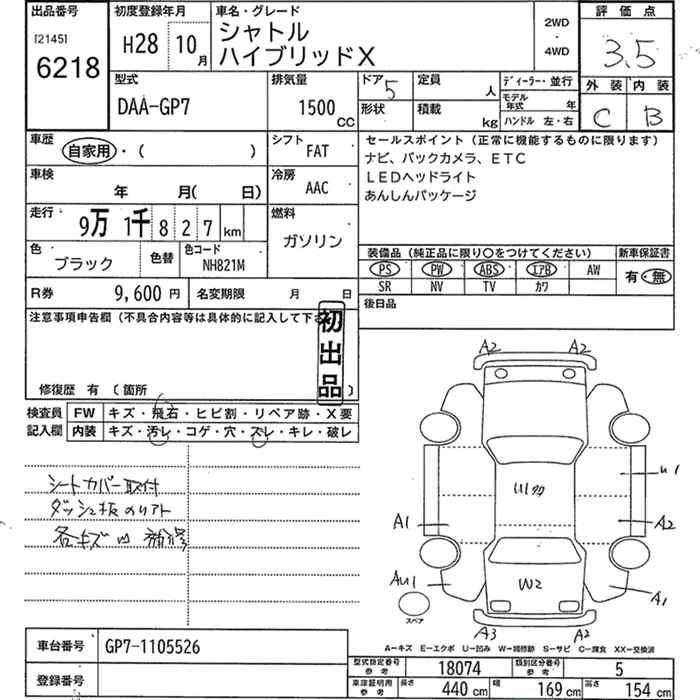 出品番号
[2145]
6218
初度登録年月
H28 10月
車名・グレード
シャトル
ハイブリッドX
2WD
・
4WD
評価点
3.5
外装 内装
C B
型式
DAA-GP7
排気量
1500 CC
ドア 5
形状
定員 人
積載 kg
ディーラー・並行
モデル年式 年
ハンドル 左・右
車歴
自家用・( )
シフト
FAT
車検
年 月( 日)
冷房
AAC
走行
9万 1千 8 2 7 km
燃料
ガソリン
色
ブラック
色替
色コード
NH821M
R券 9,600 円
名変期限 月 日
セールスポイント(正常に機能するものに限ります)
ナビ、バックカメラ、ETC
LEDヘッドライト
あんしんパッケージ
装備品(純正品に限り○をつけてください)
PS PW ABS エアB AW
SR NV TV カワ
新車保証書
有・無
後日品
注意事項申告欄(不具合内容等は具体的に記入して下さ
初出品
修復歴 有 〔箇所 〕
検査員記入欄
FW キズ・飛石・ヒビ割・リペア跡・X要
内装 キズ・汚レ・コゲ・穴・スレ・キレ・破レ
シートカバー取付
ダッシュ板のリアト
各キズ凹 補修
A2 A2
U1
U1
A1
A2
AU1
W2
A1
スペア
A3 A2
A=キズ E=エクボ U=凹み W=補修跡 S=サビ C=腐食 XX=交換済
車台番号 GP7-1105526
登録番号
型式指定番号 参考 18074
類別区分番号 参考 5
車庫証明用 参考 長さ 440 cm 幅 169 cm 高さ 154 cm